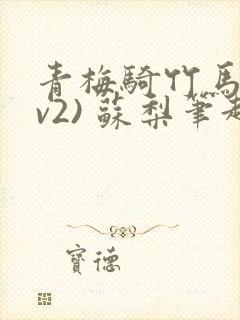 青梅騎竹馬
v2) 蘇梨筆
寶德